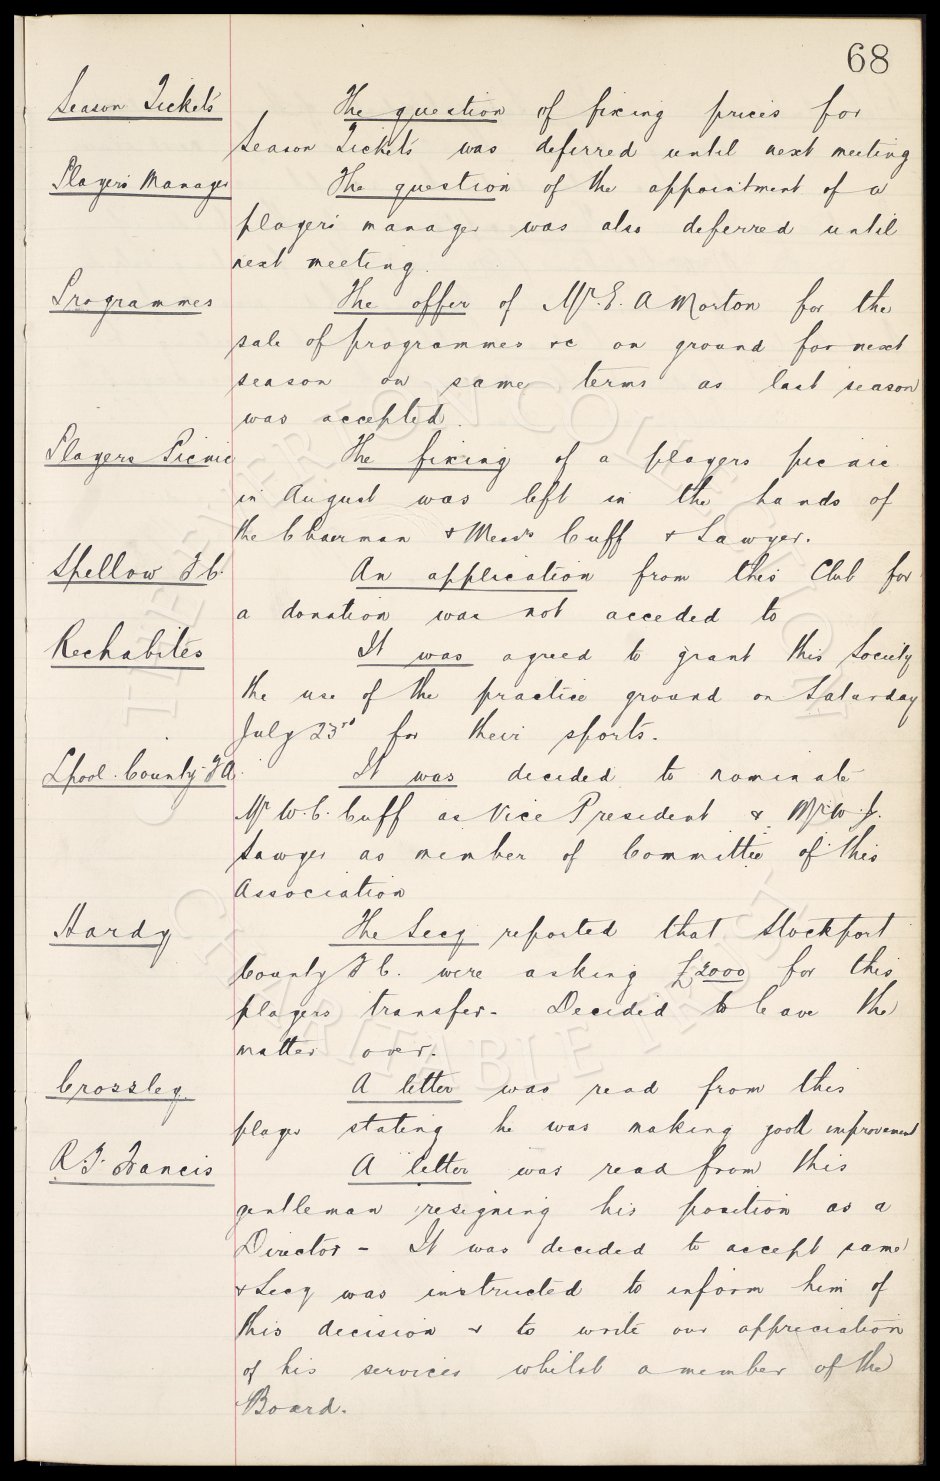 68
Season Tickets
The question of fixing prices for
Season Tickets was deferred until next meeting
Players Manager
The question of the appointment of a
players manager was also deferred until
next meeting.
Programmes
The offer of Mr. E. A Morton for the
sale of programmes &c on ground for next
season on same terms as last season
was accepted.
Players Picnic
The fixing of a players picnic
in August was left in the hands of
the Chairman & Messrs Cuff & Sawyer.
Spellow F C.
An application from this Club for
a donation was not acceded to
Rechabites
It was agreed to grant this Society
the use of the practice ground on Saturday
July 23rd for their sports.
Lpool. County F A.
It was decided to nominate
Mr W. C. Cuff as Vice President & Mr W. J.
Sawyer as member of Committee of this
Association
Hardy
The Secy reported that Stockport
County F C. were asking £2000 for this
players transfer - Decided to leave the
matter over.
Crossley
A letter was read from this
player stating he was making good improvement
R. F. Francis
A letter was read from this
gentleman resigning his position as a
Director - It was decided to accept same
& Secy was instructed to inform him of
this decision & to write our appreciation
of his services whilst a member of the
Board.
THE EVERTON COLLECTION
CHARITABLE TRUST